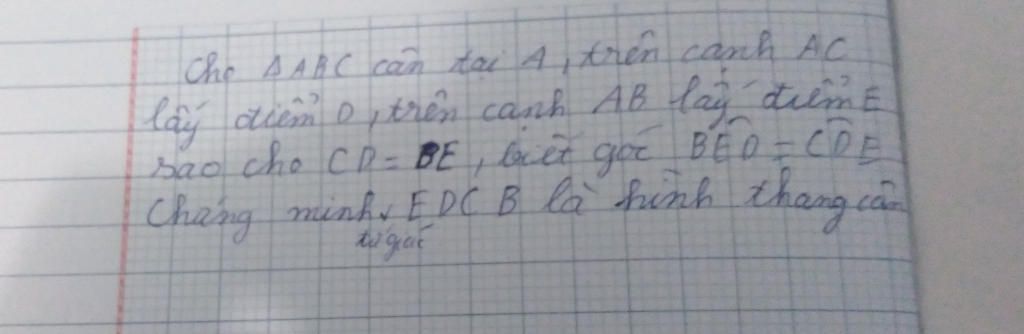 Cho ΔABC cân tại A, trên cạnh AC
lấy điểm D, trên cạnh AB lấy điểm E
sao cho CD = BE, biết góc BÊD = CD̂E
Chứng minh tứ giác EDCB là hình thang cân